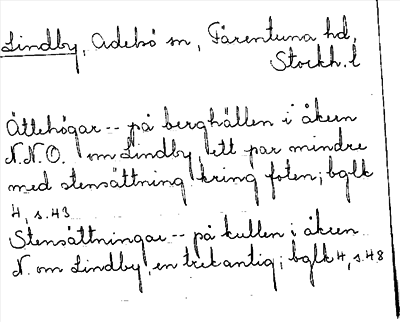 Lindby, Adelsö sn, Färentuna hd,
Stockh. l
Ättehögar -- på berghällen i åkern
N.N.O. om Lindby, ett par mindre
med stensättning kring foten; bglk
4, s. 43
Stensättningar -- på kullen i åkern
N. om Lindby, en trekantig; bglk 4, s. 48